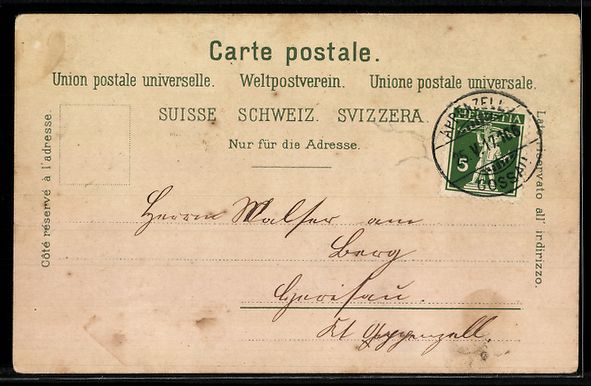 Carte postale.
Union postale universelle. Weltpostverein. Unione postale universale.
SUISSE SCHWEIZ. SVIZZERA.
Nur für die Adresse.
Côté réservé à l'adresse.
Lato riservato all' indirizzo.
HELVETIA
5
APPENZELL
GOSSAU
Herrn Walser am
Berg
Herisau.
Kt Appenzell.